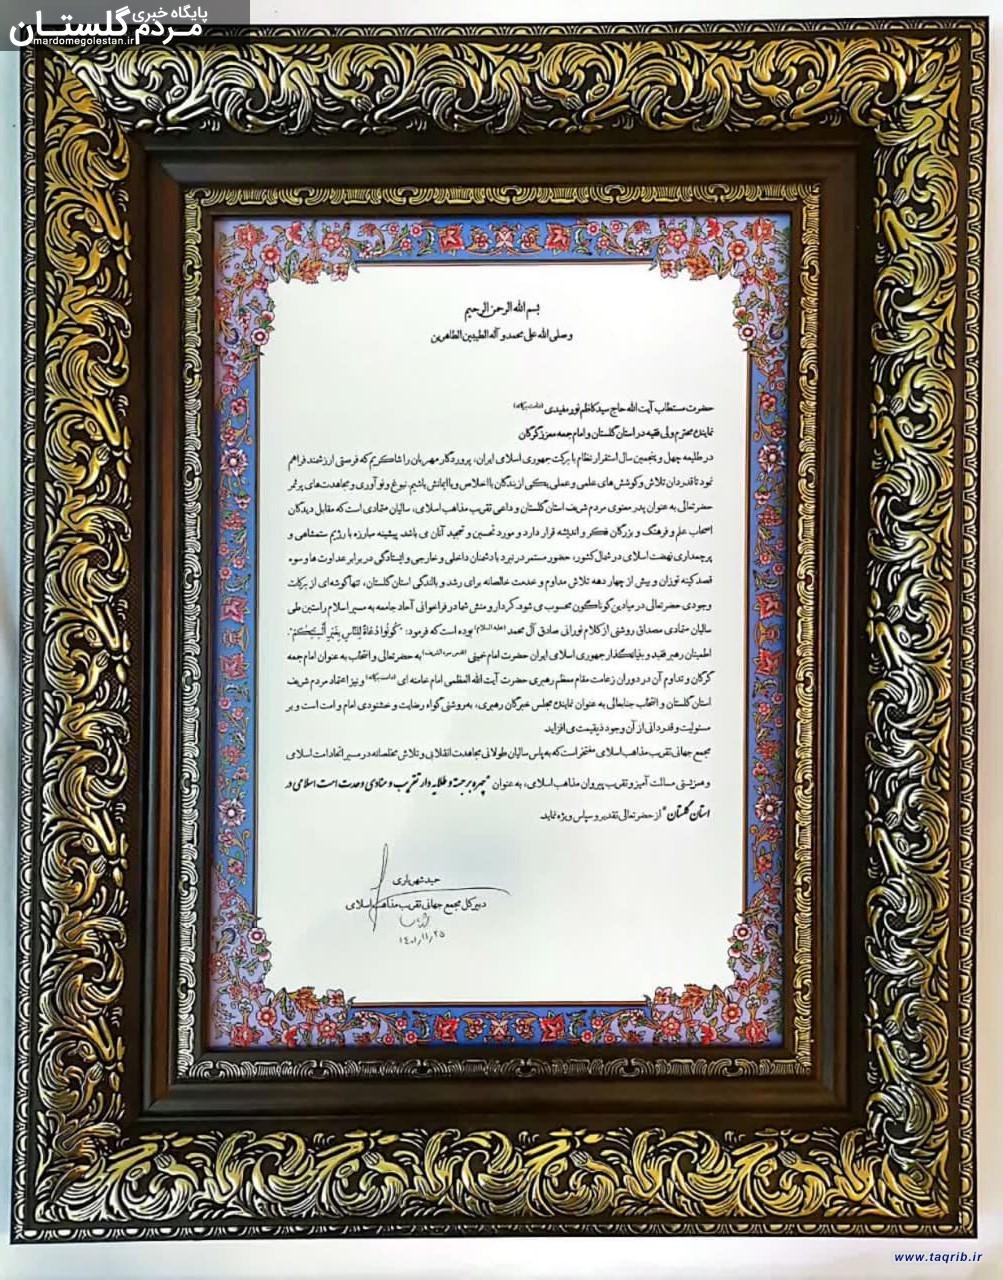 پایگاه خبری
مردم گلستان
mardomegolestan.ir
بسم الله الرحمن الرحیم
وصلی الله علی محمد و آله الطیبین الطاهرین
حضرت مستطاب آیت الله حاج سید کاظم نورمفیدی (دامت برکاته)
نماینده محترم ولی فقیه در استان گلستان و امام جمعه معزز گرگان
در طلیعه چهل و پنجمین سال استقرار نظام با برکت جمهوری اسلامی ایران، پروردگار مهربان را شاکریم که فرصتی ارزشمند فراهم
نمود تا قدردان تلاش و کوشش‌های علمی و عملی یکی از بندگان با اخلاص و با ایمانش باشیم. نبوغ و نوآوری و مجاهدت‌های پرثمر
حضرتعالی به عنوان پدر معنوی مردم شریف استان گلستان و داعی تقریب مذاهب اسلامی، سالیان متمادی است که مقابل دیدگان
اصحاب علم و فرهنگ و بزرگان فکر و اندیشه قرار دارد و مورد تحسین و تمجید آنان می باشد. پیشینه مبارزه با رژیم ستمشاهی و
پرچمداری نهضت اسلامی در شمال کشور، حضور مستمر در نبرد با دشمنان داخلی و خارجی و ایستادگی در برابر عداوت ها و سوء
قصد کینه توزان و بیش از چهار دهه تلاش مداوم و خدمت خالصانه برای رشد و بالندگی استان گلستان، تنها گوشه ای از برکات
وجودی حضرتعالی در میادین گوناگون محسوب می شود. کردار و منش شما در فراخوانی آحاد جامعه به مسیر اسلام راستین طی
سالیان متمادی مصداق روشنی از کلام نورانی صادق آل محمد (علیه السلام) بوده است که فرمود: "کُونُوا دُعَاةً لِلنَّاسِ بِغَیْرِ أَلْسِنَتِکُمْ".
اطمینان رهبر فقید و بنیانگذار جمهوری اسلامی ایران حضرت امام خمینی (قدس سره الشریف) به حضرتعالی و انتخاب به عنوان امام جمعه
گرگان و تداوم آن در دوران زعامت مقام معظم رهبری حضرت آیت الله العظمی امام خامنه ای (دامت برکاته) و نیز اعتماد مردم شریف
استان گلستان و انتخاب جنابعالی به عنوان نماینده مجلس خبرگان رهبری، به‌روشنی گواه رضایت و خشنودی امام و امت است و بر
مسئولیت و قدردانی از آن وجود ذیقیمت می افزاید.
مجمع جهانی تقریب مذاهب اسلامی مفتخر است که به پاس سالیان طولانی مجاهدت انقلابی و تلاش مخلصانه در مسیر اتحاد امت اسلامی
و همزیستی مسالمت آمیز و تقریب پیروان مذاهب اسلامی، به عنوان "چهره برجسته و طلایه دار تقریب و منادی وحدت امت اسلامی در
استان گلستان" از حضرتعالی تقدیر و سپاس ویژه نماید.
حمید شهریاری
دبیرکل مجمع جهانی تقریب مذاهب اسلامی
۱۴۰۱/۱۱/۲۵
www.taqrib.ir